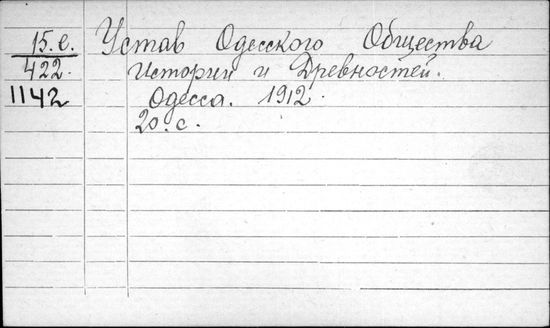 15.е. Устав Одесского Общества
422. Истории и Древностей.
1142 Одесса. 1912.
20. с.